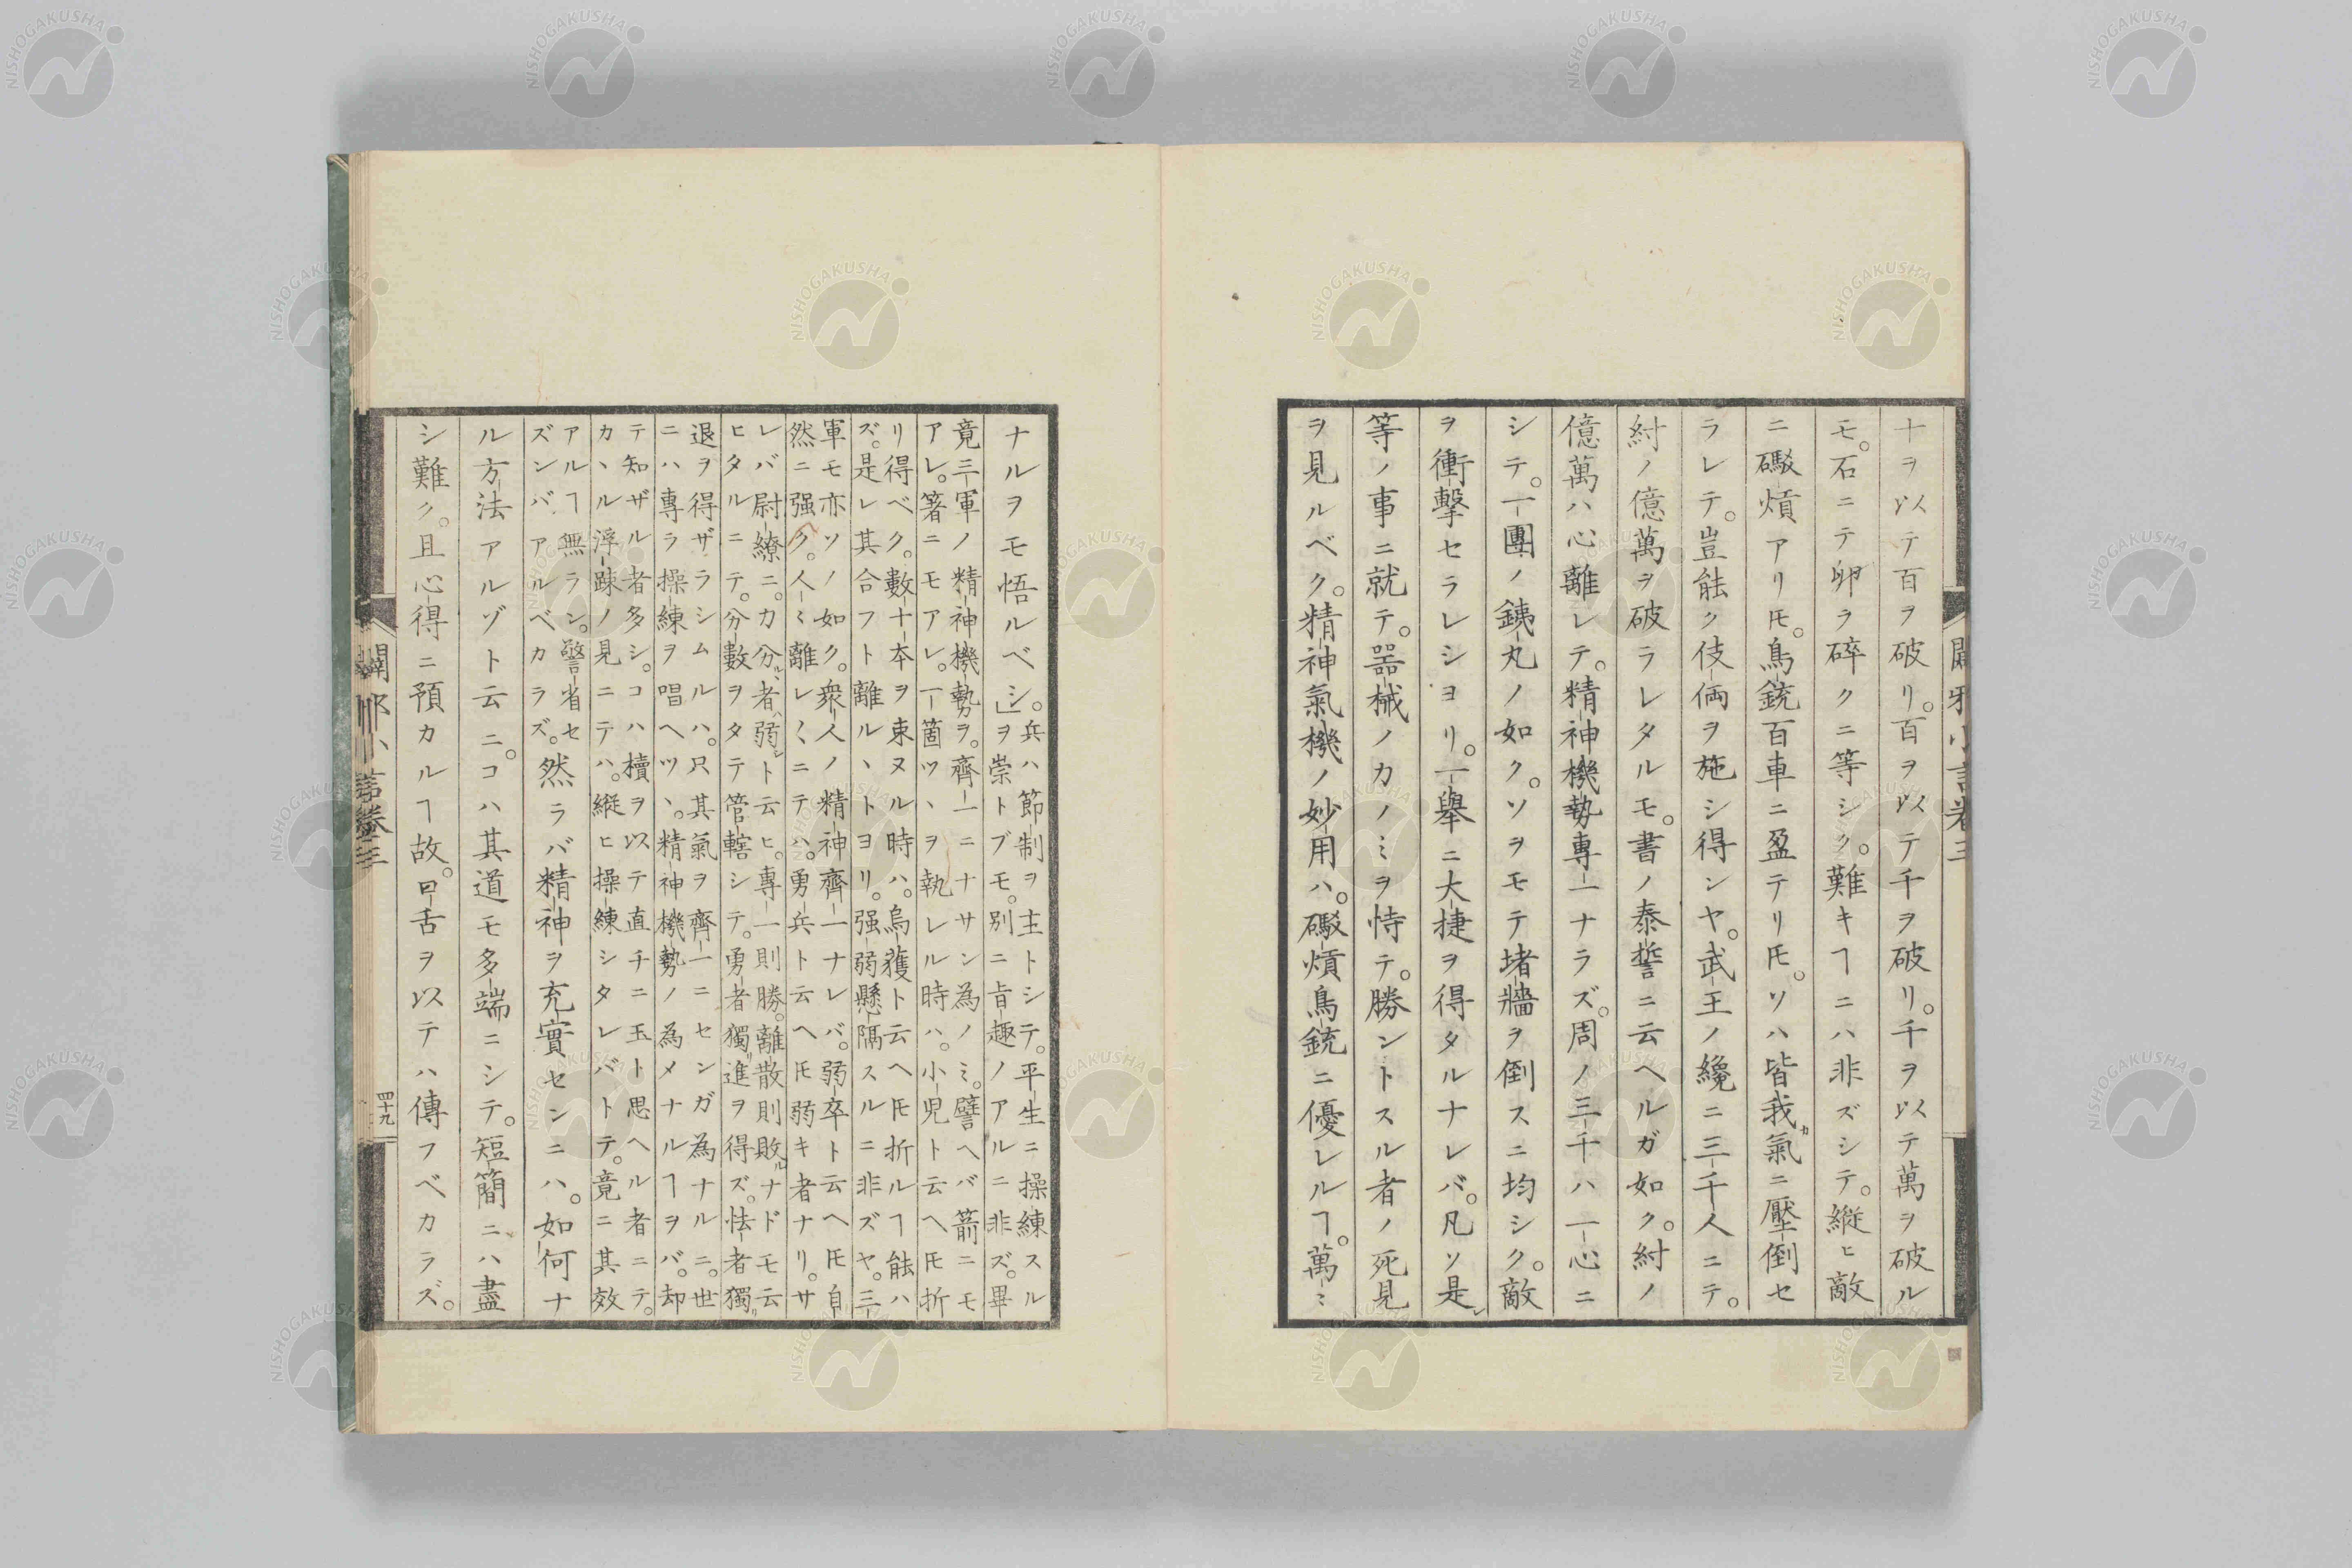 十ヲ以テ百ヲ破リ。百ヲ以テ千ヲ破リ。千ヲ以テ萬ヲ破ル
モ。石ニテ卵ヲ碎クニ等シク。難キヿニハ非ズシテ。縱ヒ敵
ニ礮熕アリ𪜈。鳥銃百車ニ盈テリ𪜈。ソハ皆我カ氣ニ壓倒セ
ラレテ。豈能ク伎倆ヲ施シ得ンヤ。武王ノ纔ニ三千人ニテ。
紂ノ億萬ヲ破ラレタルモ。書ノ泰誓ニ云ヘルガ如ク。紂ノ
億萬ハ心離レテ。精神機勢專一ナラズ。周ノ三千ハ一心ニ
シテ。一團ノ銕丸ノ如ク。ソヲモテ堵牆ヲ倒スニ均シク。敵
ヲ衝擊セラレシヨリ。一擧ニ大捷ヲ得タルナレバ。凡ソ是レ
等ノ事ニ就テ。器械ノカノミヲ恃テ。勝ントスル者ノ死見
ヲ見ルベク。精神氣機ノ妙用ハ。礮熕鳥銃ニ優レルヿ。萬〻
ナルヲモ悟ルベシ。」兵ハ節制ヲ主トシテ。平生ニ操練スル
ヲ崇トブモ。別ニ旨趣ノアルニ非ズ。畢
竟三軍ノ精神機勢ヲ。齊一ニナサン為ノミ。譬ヘバ箭ニモ
アレ。箸ニモアレ。一箇ツヽヲ執レル時ハ。小兒ト云ヘ𪜈折
リ得ベク。數十本ヲ束ヌル時ハ。烏獲ト云ヘ𪜈折ルヿ能ハ
ズ。是レ其合フト離ルヽトヨリ。强弱懸隔スルニ非ズヤ。三
軍モ亦ソノ如ク。衆人ノ精神齊一ナレバ。弱卒ト云ヘ𪜈自
然ニ强ク。人〻離レ〱ニテハ。勇兵ト云ヘ𪜈弱キ者ナリ。サ
レバ尉繚ニ。力分ルヽ者ハ弱シト云ヒ。專一則勝。離散則敗ルナドモ云
ヒタルニテ。分數ヲタテ管轄シテ。勇者獨リ進ヲ得ズ。怯者獨リ
退ヲ得ザラシムルハ。只其氣ヲ齊一ニセンガ為ナルニ。世
ニハ專ラ操練ヲ唱ヘツヽ。精神機勢ノ為メナルヿヲバ。却
テ知ザル者多シ。コハ櫝ヲ以テ直チニ玉ト思ヘル者ニテ。
カヽル浮疎ノ見ニテハ。縱ヒ操練シタレバトテ。竟ニ其效
アルヿ無ラン。警省セ
ズンバアルベカラズ。然ラバ精神ヲ充實センニハ。如何ナ
ル方法アルゾト云ニ。コハ其道モ多端ニシテ。短簡ニハ盡
シ難ク。且心得ニ預カルヿ故。口舌ヲ以テハ傳フベカラズ。
闢邪小言卷三
四十九
NISHOGAKUSHA